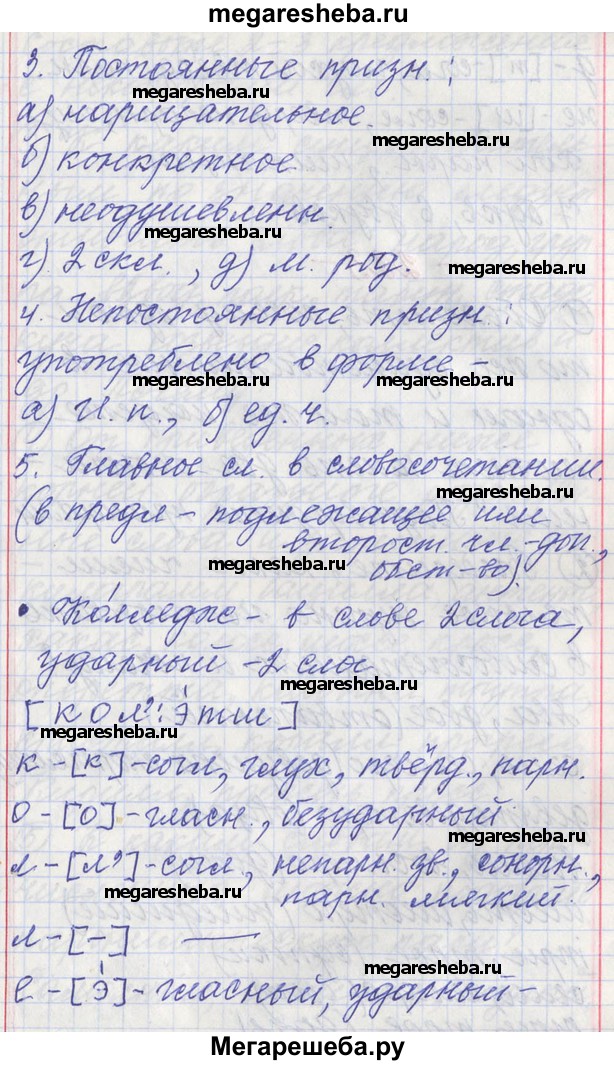 megaresheba.ru
3. Постоянные призн.:
megaresheba.ru
а) нарицательное.
megaresheba.ru
б) конкретное
в) неодушевленн.
megaresheba.ru
г) 2 скл., д) м. род.
megaresheba.ru
megaresheba.ru
4. Непостоянные призн.:
употреблено в форме –
megaresheba.ru megaresheba.ru
а) И. п., б) ед. ч.
5. Главное сл. в словосочетании.
megaresheba.ru
(в предл – подлежащее или
второст. чл. – доп.,
megaresheba.ru
обст-во).
• Ко́лледж – в слове 2 слога,
ударный – 2 слог
megaresheba.ru
[кол':э́тш]
megaresheba.ru
к – [к] – согл., глух., твёрд., парн.
о – [о] – гласн., безударный
megaresheba.ru
л – [л'] – согл., непарн. зв., сонорн.,
megaresheba.ru
парн. мягкий.
л – [–] —
megaresheba.ru
е – [э́] – гласный, ударный –
Мегарешеба.ру